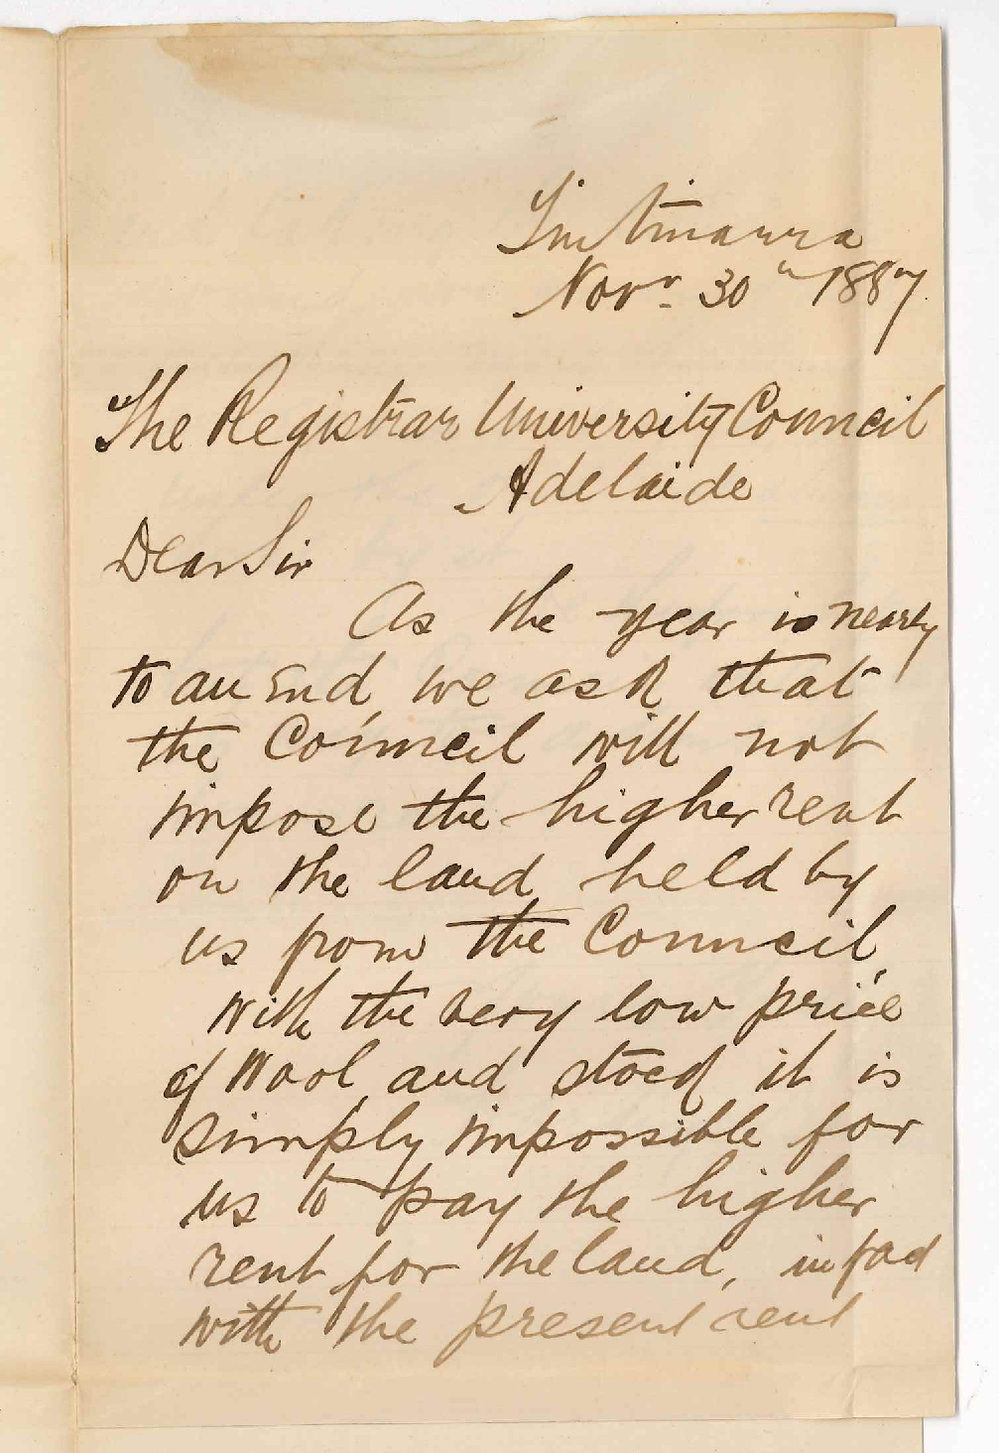 Tintinarra
Novr. 30th 1887
The Registrar University Council
Adelaide
Dear Sir
As the year is nearly
to an End, we ask that
the Council will not
impose the higher rent
on the land held by
us from the Council,
with the very low price
of Wool and stock it is
simply impossible for
us to pay the higher
rent for the land, in fact
with the present rent